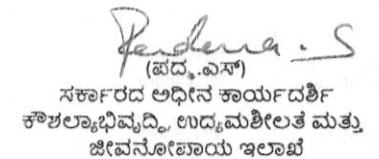 Padma . S
(ಪದ್ಮ.ಎಸ್)
ಸರ್ಕಾರದ ಅಧೀನ ಕಾರ್ಯದರ್ಶಿ
ಕೌಶಲ್ಯಾಭಿವೃದ್ಧಿ, ಉದ್ಯಮಶೀಲತೆ ಮತ್ತು
ಜೀವನೋಪಾಯ ಇಲಾಖೆ